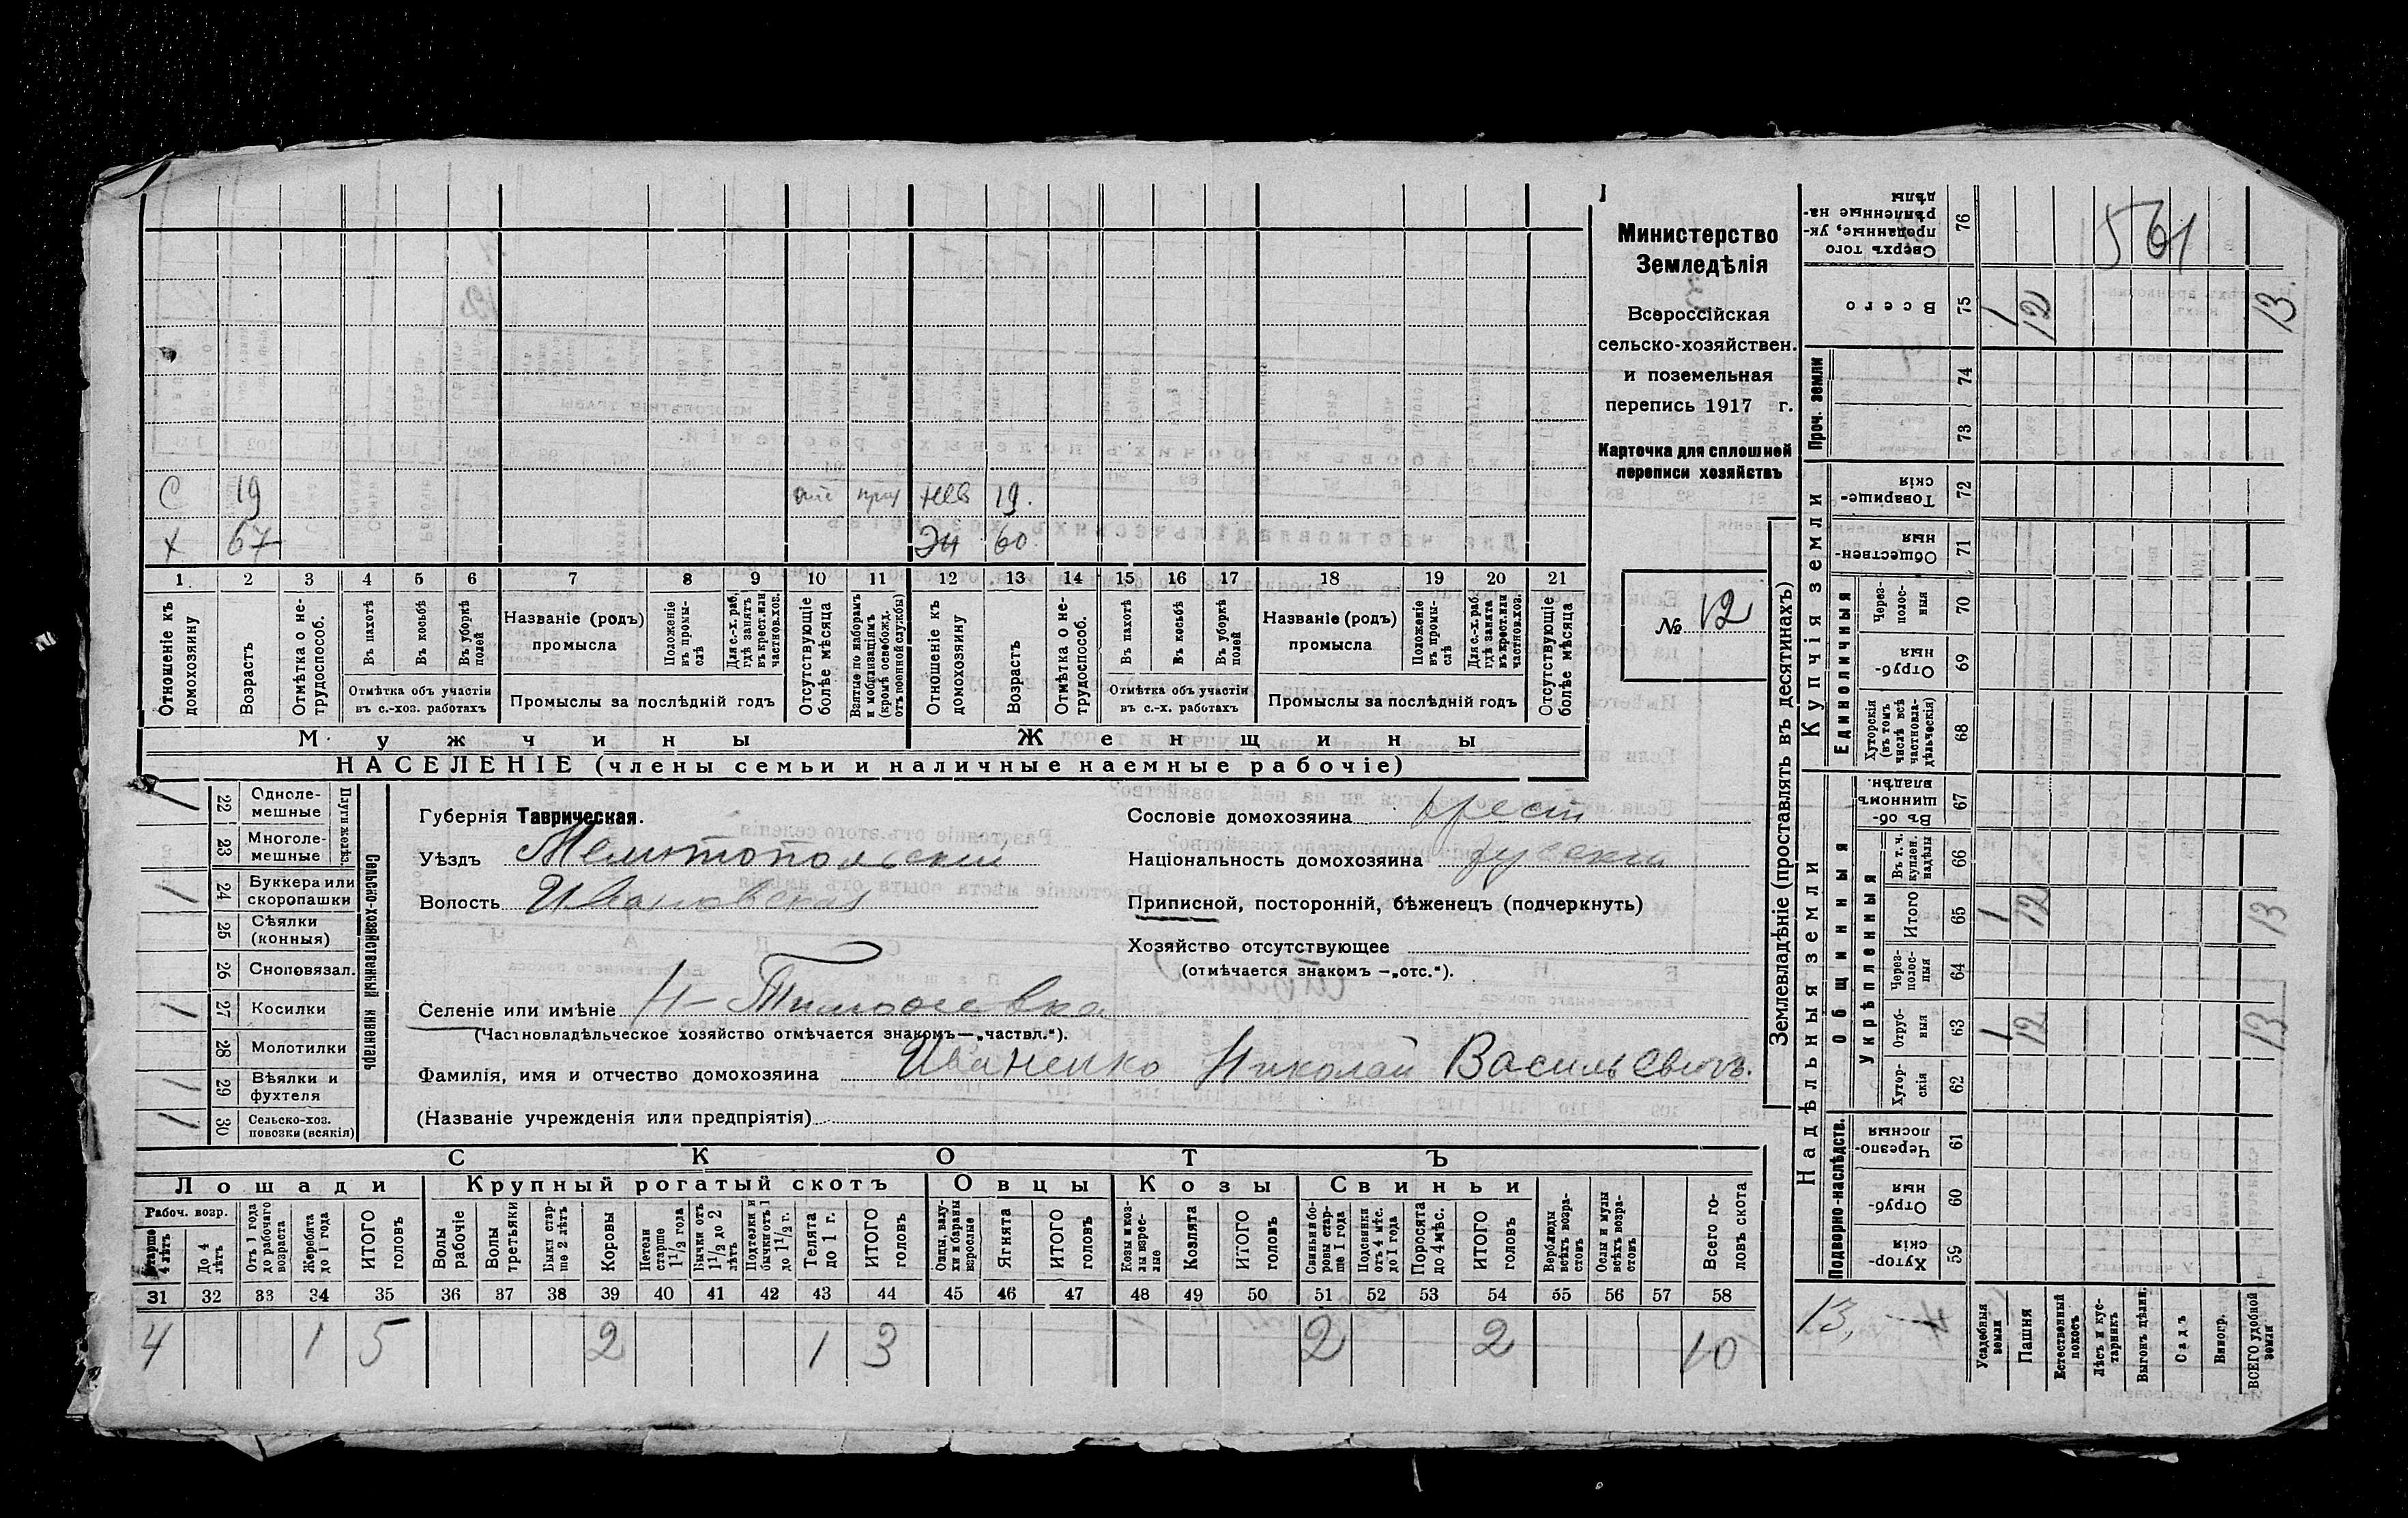 561
С 19 отс приз нев 19.
Х 67 Эн 60
1 2 3 4 5 6 7 8 9 10 11 12 13 14 15 16 17 18 19 20 21
Отношеніе къ домохозяину
Возрастъ
Отмѣтка о не-трудоспособ.
Въ пахотѣ
Въ косьбѣ
Въ уборкѣ полей
Отмѣтка объ участіи въ с.-хоз. работахъ
Названіе (родъ) промысла
Положеніе въ промы-слѣ
Для с.-х. раб, гдѣ занятъ въ крест. или частнов. хоз.
Промыслы за послѣдній годъ
Отсутствующіе болѣе мѣсяца
Взятые по наборамъ и мобилизаціямъ (кромѣ освобожд. отъ военной службы)
Отношеніе къ домохозяину
Возрастъ
Отмѣтка о не-трудоспособ.
Въ пахотѣ
Въ косьбѣ
Въ уборкѣ полей
Отмѣтка объ участіи въ с.-х. работахъ
Названіе (родъ) промысла
Положеніе въ промы-слѣ
Для с.-х. раб. гдѣ занята въ крест. или частнов. хоз.
Промыслы за послѣдній годъ
Отсутствующіе болѣе мѣсяца
Мужчины
Женщины
НАСЕЛЕНІЕ (члены семьи и наличные наемные рабочіе)
Министерство
Земледѣлія
Всероссійская
сельско-хозяйствен.
и поземельная
перепись 1917 г.
Карточка для сплошной
переписи хозяйствъ
№ 12
Сельско-хозяйственный инвентарь
Плуги желѣз.
1 22 Одноле-мешные
23 Многоле-мешные
1 24 Буккера или скоропашки
25 Сѣялки (конныя)
26 Сноповязал.
1 27 Косилки
28 Молотилки
1 29 Вѣялки и фухтеля
1 30 Сельско-хоз. повозки (всякія)
Губернія Таврическая.
Уѣздъ Мелитопольскій
Волость Ивановская
Сословіе домохозяина крест
Національность домохозяина русскій
Приписной, посторонній, бѣженецъ (подчеркнуть)
Хозяйство отсутствующее
(отмѣчается знакомъ —„отс.“).
Селеніе или имѣніе Н-Тимофеевка
(Частновладѣльческое хозяйство отмѣчается знакомъ—„частвл.“).
Фамилія, имя и отчество домохозяина Иваненко Николай Васильевичъ.
(Названіе учрежденія или предпріятія)
СКОТЪ
Лошади
Крупный рогатый скотъ
Овцы
Козы
Свиньи
Рабоч. возр.
Старше 4 лѣтъ
До 4 лѣтъ
Отъ 1 года до рабочаго возраста
Жеребята до 1 года
ИТОГО головъ
Волы рабочіе
Волы третьяки
Быки стар-ше 2 лѣтъ
Коровы
Нетели старше 1 1/2 года
Бычки отъ 1 1/2 до 2 лѣтъ
Подтелки и бычки отъ 1 до 1 1/2 г.
Телята до 1 г.
ИТОГО головъ
Овцы, валу-хи и бараны взрослые
Ягнята
ИТОГО головъ
Козы и коз-лы взрос-лые
Козлята
ИТОГО головъ
Свиньи и бо-ровы стар-ше 1 года
Подсвинки отъ 4 мѣс. до 1 года
Поросята до 4 мѣс.
ИТОГО головъ
Верблюды всѣхъ возра-стовъ
Ослы и мулы всѣхъ возра-стовъ
Всего го-ловъ скота
31 32 33 34 35 36 37 38 39 40 41 42 43 44 45 46 47 48 49 50 51 52 53 54 55 56 57 58
4 1 5 2 1 3 2 2 10
Землевладѣніе (проставлять въ десятинахъ)
Надѣльныя земли
Купчія земли
Проч. земли
Подворно-наслѣдств.
Общинныя
Укрѣпленныя
Единоличныя
Сверхъ того проданные, ук-рѣпленные на-дѣлы 76
Всего 75 1 12 13.
74
73
Товарище-скія 72
Обществен-ныя 71
Через-полос-ныя 70
Отруб-ныя 69
Хуторскія (въ томъ числѣ всѣ частновла-дѣльческія) 68
Въ об-щинномъ владѣн. 67
Въ т. ч. куплен. надѣлы 66
Итого 65 1 12 13
Через-полос-ныя 64
Отруб-ныя 63 1 12 13
Хутор-скія 62
Черезпо-лосныя 61
Отруб-ныя 60
Хутор-скія 59
13,
Усадебныя земли
Пашня
Естественный покосъ
Лѣсъ и кус-тарникъ
Выгонъ цѣлин.
Садъ
Виногр.
ВСЕГО удобной земли